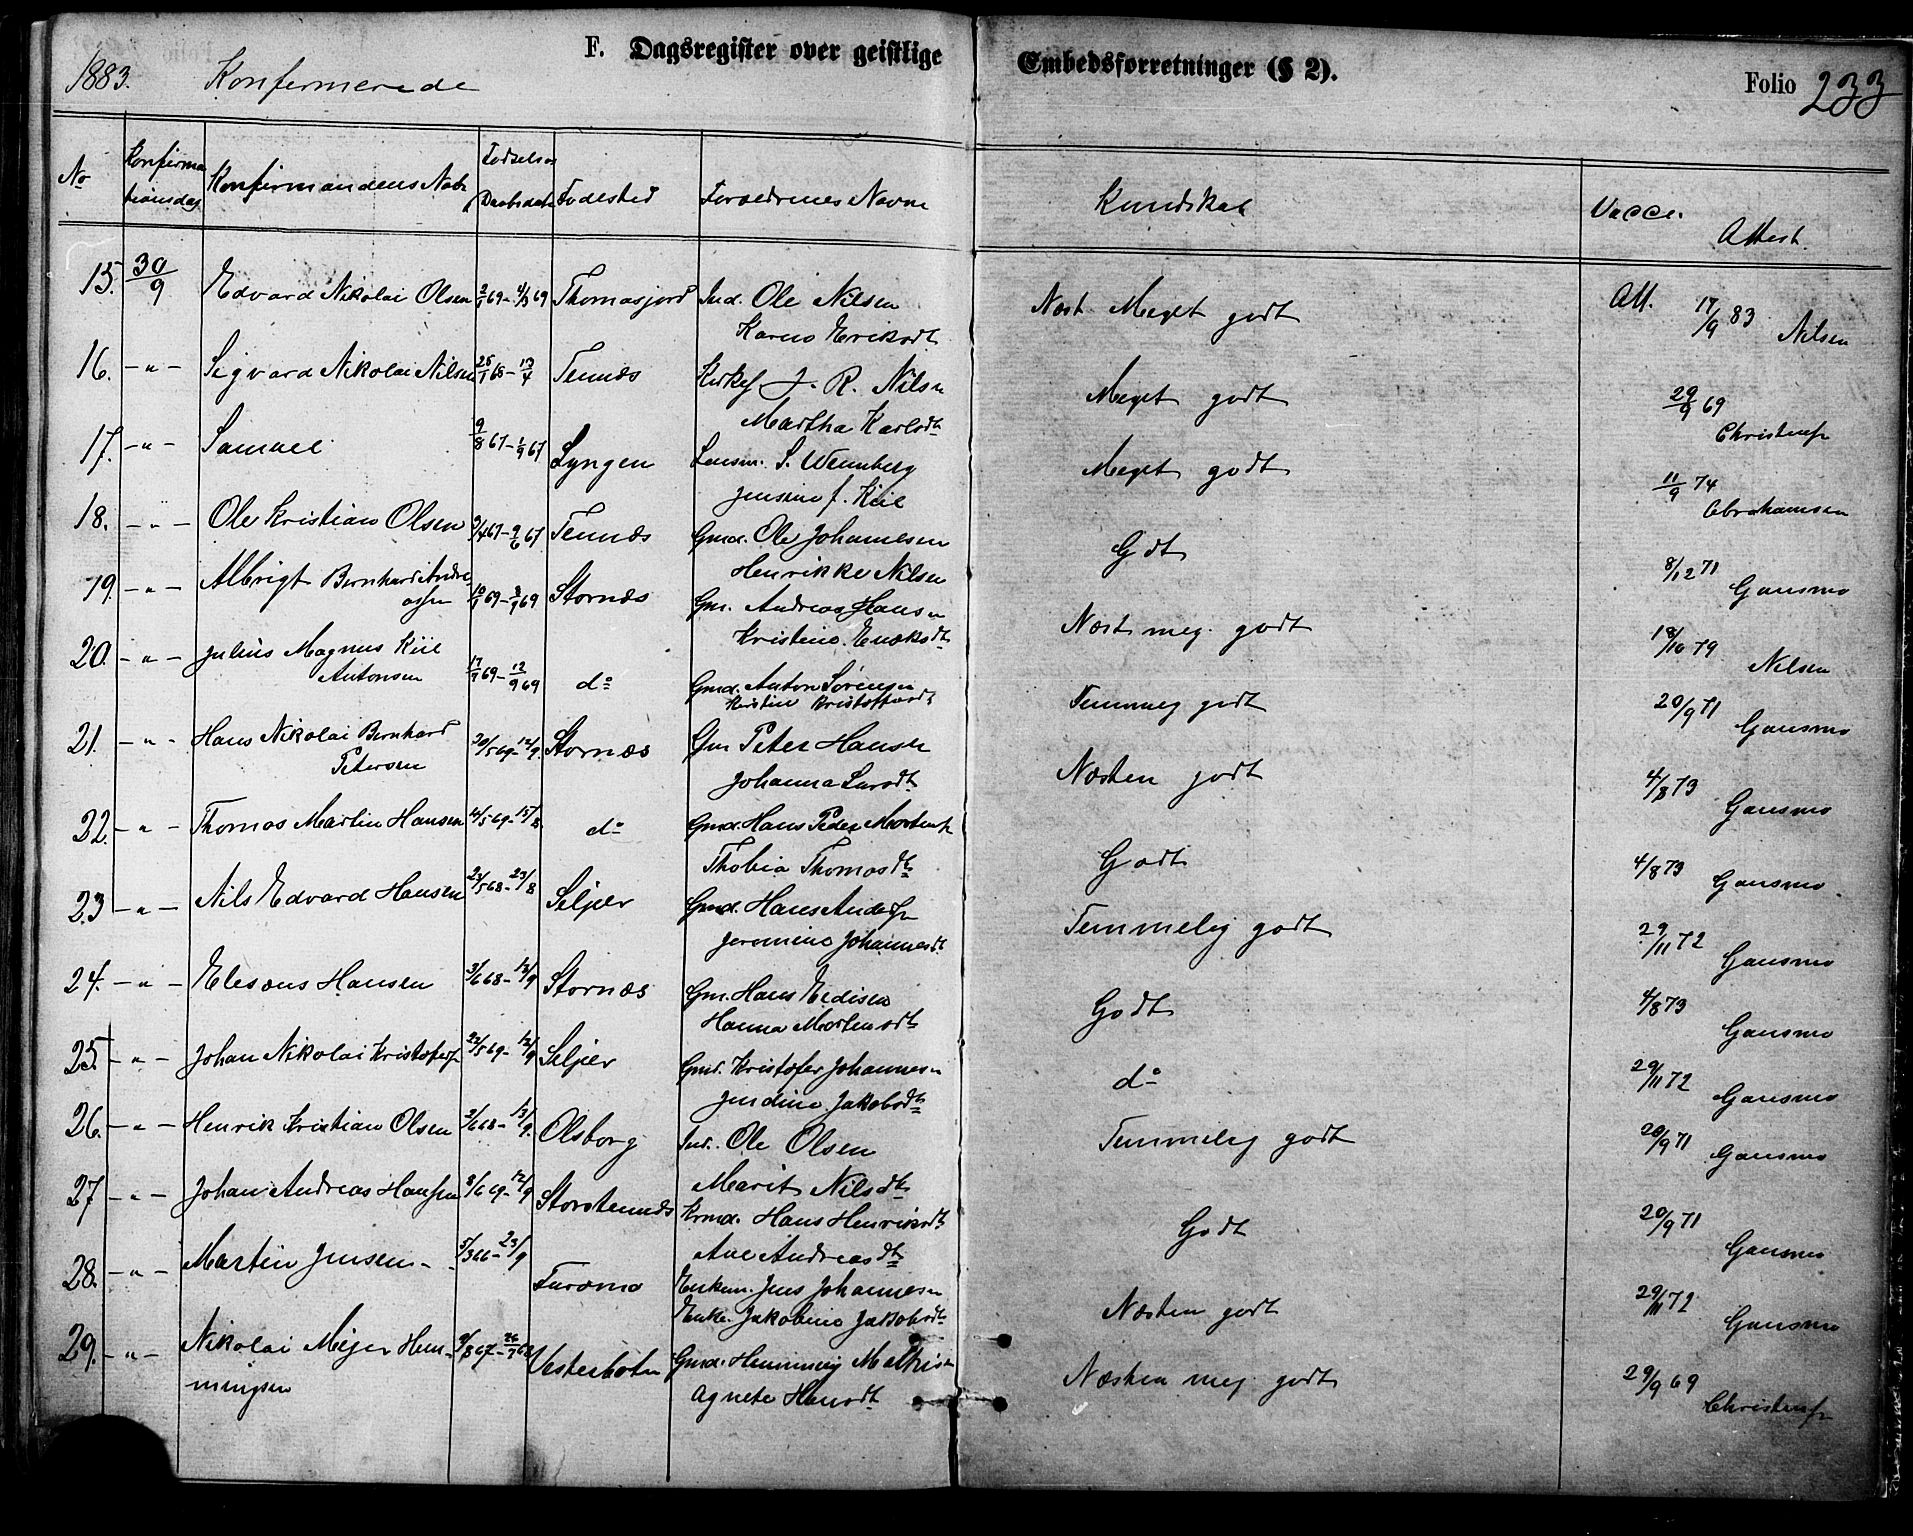 F. Dagsregister over geistlige Embedsforretninger (§ 2).
1883. Konfermerede Folio 233
No Konfirmationsdag Konfirmandens Navn Fødsels og Daabsdato Fødested Forældrenes Navne Kundskab Vacc. Attest.
15. 30/9 Edvard Nikolai Olsen 69 - 69 Thomasjord Ind. Ole Nilsen Næst Meget godt Att. 17/9 83 Nilsen
Karen Eriksdt
16. -"- Sigvard Nikolai Nilsen 68 - 13/4 Tennæs J. R. Nilsen Meget godt 29/9 69 Christensen
Martha Karlsdt
17. -"- Samuel 9/8 67 - 1/9 67 Lyngen Lensm. S. Wennberg Meget godt 11/9 74 Abrahamsen
Jensine f. Kiil
18. -"- Ole Kristian Olsen 67 - 9/6 67 Tennæs Gmd. Ole Johannesen Godt 8/12 71 Gausmo
Henrikke Nilsen
19. -"- Albrigt Bernhard Andreassen 69 - 69 Stornæs Gm. Andreas Hansen Næst meg. godt 18/10 79 Nilsen
Kristine
20. -"- Julius Magnus Kiil
Antonsen 69 - 12/9 69 do Gmd. Anton Sørensen Temmeg godt 20/9 71 Gausmo
21. -"- Hans Nikolai Bernhard
Petersen 30/5 69 - 12/9. Stornæs Gm Peter Hansen Næsten godt 4/8 73 Gausmo
Johanna Larsdt
22. -"- Thomas Martin Hansen 69 - 15/8 do Gmd. Hans Peder Mortensen Godt 4/8 73 Gausmo
Thobia Thomasdt
23 -"- Nils Edvard Hansen 24/5 68 - 23/8 Seljelv Gmd. Hans Anders Temmelig godt 29/11 72 Gausmo
Jeremine Johannesdt
24. -"- Elesæus Hansen 3/6 68 - 13/9 Stornæs Gm. Hans Godt 4/8 73 Gausmo
Hanna Mortensdt
25. -"- Johan Nikolai Kristofers 22/5 69 - 12/9 Seljelv Gmd. Kristofer Johannesen do 29/11 72 Gausmo
Jendine Jakobsdt
26. -"- Henrik Kristian Olsen 2/6 68 - 13/9. Olsborg Ind. Ole Olsen Temmelig godt 20/9 71 Gausmo
Marit Nilsdt
27 -"- Johan Andreas Hansen 8/6 69 - 12/9 Storstennæs Hans Godt 20/9 71 Gausmo
Ane Andreasdt
28. -"- Martin Jensen 5/3 66 - 23/9 Furømo Enkem. Jens Johannesen Næsten godt 29/11 72 Gausmo
Enke. Jakobine Jakobsdt
29. -"- Nikolai Mejer Hen-
ningsen 67 Vesterbotn Gmd. Henning Mathis Næsten meg. godt 29/9 69 Christensen
Agnete Hansdt